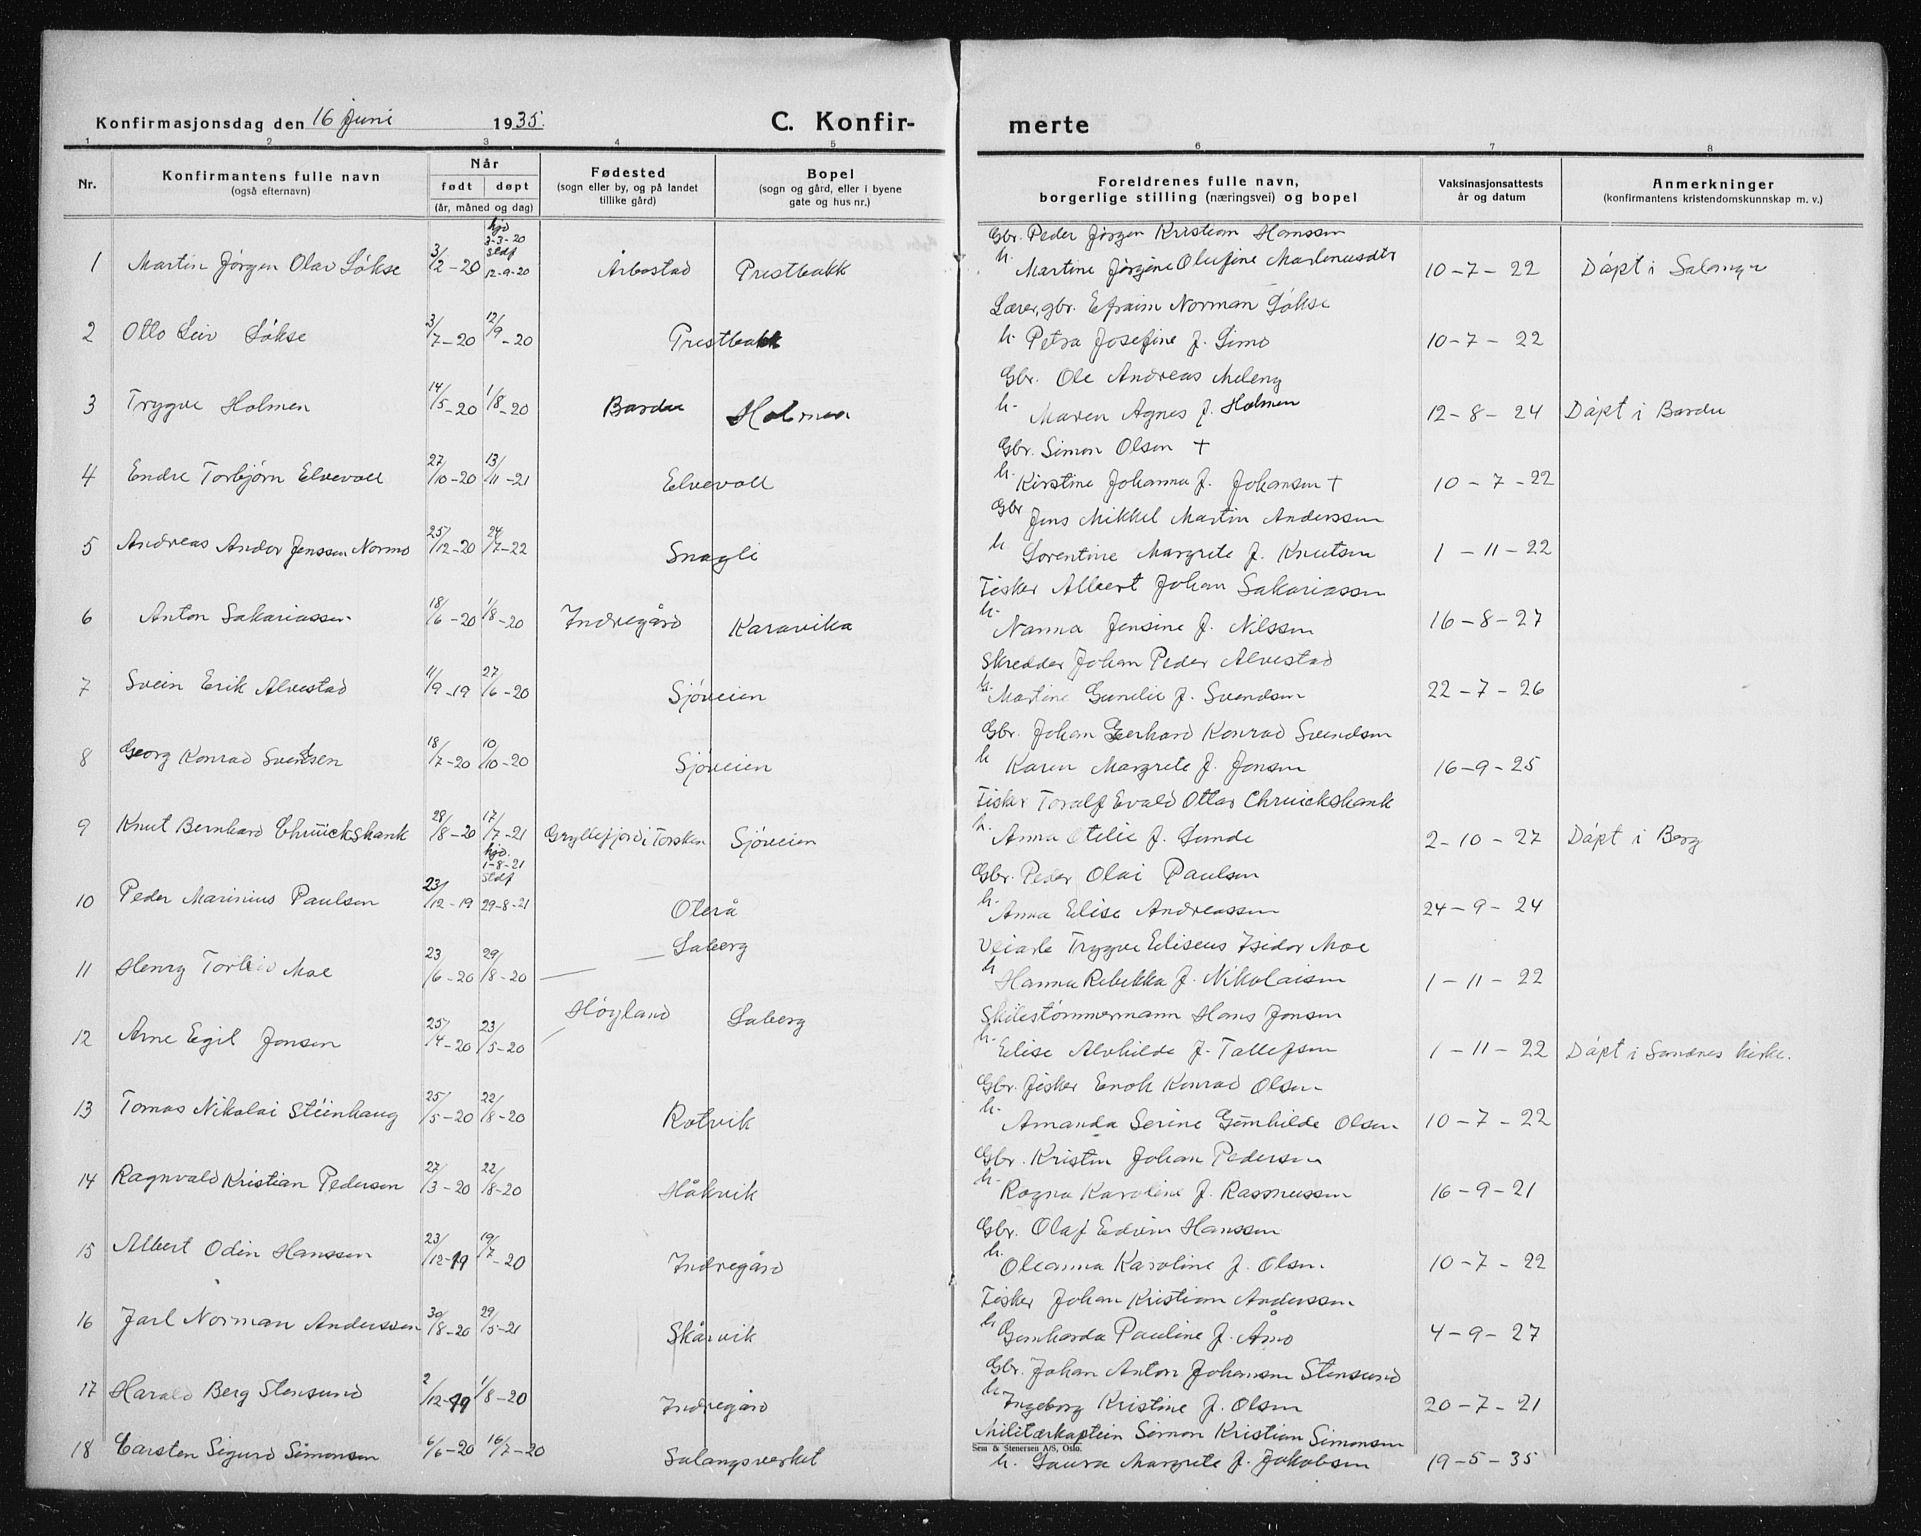 Konfirmasjonsdag den 16 juni 1935.
C. Konfirmerte
1 2 3 4 5 6 7 8
Nr.
Konfirmantens fulle navn
(også efternavn)
Når
født døpt
(år, måned og dag)
Fødested
(sogn eller by, og på landet
tillike gård)
Bopel
(sogn og gård, eller i byene
gate og hus nr.)
Foreldrenes fulle navn,
borgerlige stilling (næringsvei) og bopel
Vaksinasjonsattests
år og datum
Anmerkninger
(konfirmantens kristendomskunnskap m. v.)
Gbr. Peder Jørgen Kristian Hanssen
1 Martin Jørgen Olav Løkse 3/2-20 hjd 3-3-20 stdf 12-9-20 Årbostad Prestbakk h. Martine Jørgine Olufine Martenusdtr 10-7-22 Døpt i Salangen
Lærer, gbr. Efraim Norman Løkse
2 Otto Leiv Løkse 3/7-20 12/9-20 Prestbakk h. Petra Josefine f. Simo 10-7-22
Gbr. Ole Andreas Meleng
3 Trygve Holmen 14/5-20 1/8-20 Bardu Holmen h. Maren Agnes f. Holmen 12-8-24 Døpt i Bardu
Gbr. Simon Olsen +
4 Endre Torbjørn Elvevoll 27/10-20 13/11-21 Elvevoll h. Kirstine Johanna f. Johansen + 10-7-22
Gbr Jens Mikkel Martin Anderssen
5 Andreas Andor Jenssen Normo 25/12-20 24/7-22 Snøgli h Lorentine Margrete f. Knutsen 1-11-22
Fisker Albert Johan Sakariassen
6 Anton Sakariassen 18/6-20 1/8-20 Indregård Karavika h. Nanna Jensine f. Nilssen 16-8-27
Skredder Johan Peder Alvestad
7 Svein Erik Alvestad 11/9-19 27/6-20 Sjøveien h. Martine Gunelie f. Svendsen 22-7-26
Gbr. Johan Gerhard Konrad Svendsen
8 Georg Konrad Svendsen 18/7-20 10/10-20 Sjøveien h Karen Margrete f. Jonsen 16-9-25
Fisker Toralf Evald Ottar Chruickshank
9 Knut Bernhard Chruickshank 28/8-20 17/7-21 Gryllefjord i Torsken Sjøveien h. Anna Otelie f. Lunde 2-10-27 Døpt i Berg
Gbr. Peder Olai Paulsen
10 Peder Marinius Paulsen 23/12-19 hjd. 1-8-21 stdf 29-8-21 Oterå h. Anna Elise Andreassen 24-9-24
Veiarb Trygve Eliseus Isidor Moe
11 Henry Torleiv Moe 23/6-20 29/8-20 — — Laberg h Hanna Rebekka f. Nikolaisen 1-11-22
Skibstømmermann Hans Jonsen
12 Arne Egil Jonsen 25/4-20 23/5-20 Høyland Laberg h. Elise Alvhilde f. Tollefsen 1-11-22 Døpt i Sandnes kirke.
Gbr. fisker Enok Konrad Olsen
13 Tomas Nikolai Steinhaug 25/5-20 22/8-20 Rotvik h. Amanda Serine Gunhilde Olsen 10-7-22
Gbr. Kristen Johan Pedersen
14 Ragnvald Kristian Pedersen 27/3-20 22/8-20 Håkvik h. Ragna Karoline f. Rasmussen 16-9-21
Gbr. Olaf Edvin Hanssen
15 Albert Odin Hanssen 23/12-19 19/7-20 Indregård h. Oleanna Karoline f. Olsen 10-7-22
Fisker Johan Kristian Anderssen
16 Jarl Norman Anderssen 30/8-20 29/5-21 Skårvik h Gunharda Pauline f. Åmo 4-9-27
Gbr. Johan Anton Johansen Stensund
17 Harald Berg Stensund 2/12-19 1/8-20 Indregård h. Ingeborg Kristine f. Olsen 20-7-21
Militærkaptein Simon Kristian Simonsen
Sem & Stenersen A/S, Oslo.
18 Carsten Sigurd Simonsen 6/6-20 16/7-20 Salangsverket h. Laura Margrete f. Jakobsen 19-5-35